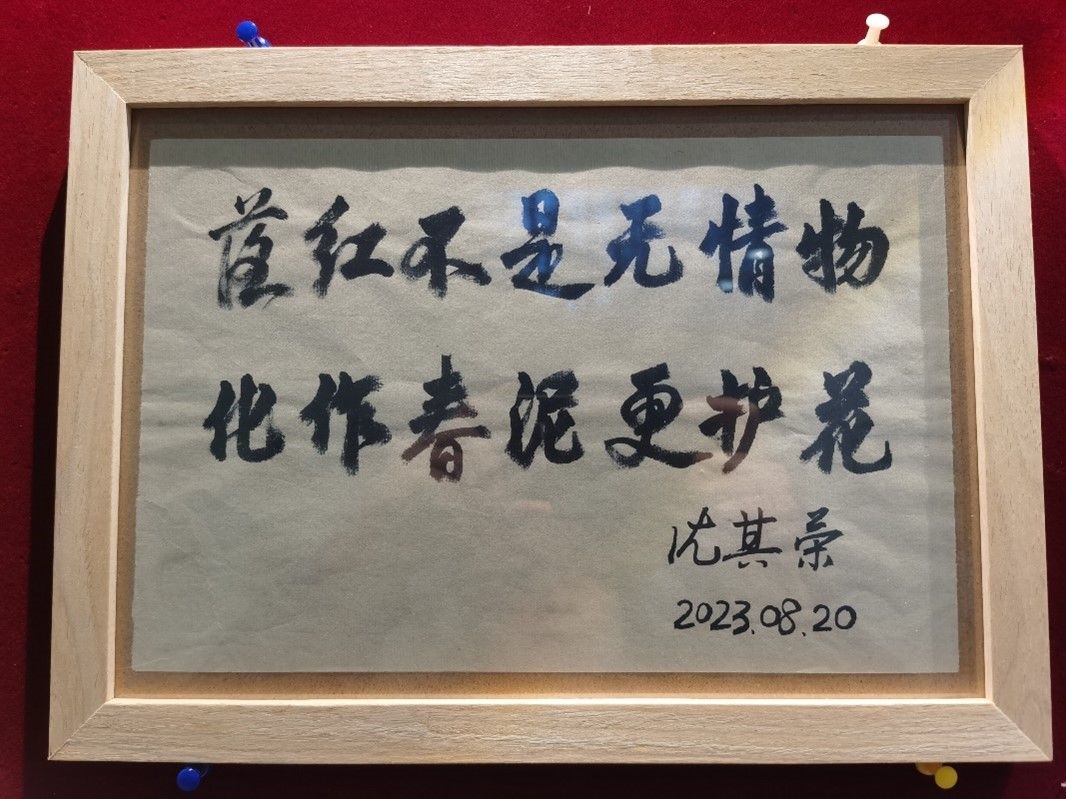 落红不是无情物
化作春泥更护花
沈其荣
2023.08.20